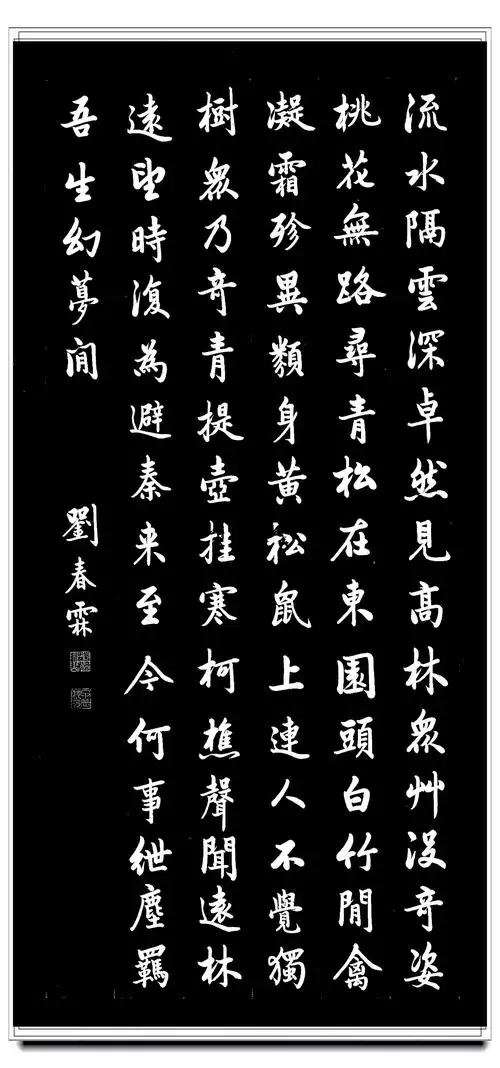 流水隔雲深卓然見高林眾艸沒竒姿
桃花無路尋青松在東園頭白竹閒禽
凝霜殄異類身黃松鼠上連人不覺獨
樹眾乃竒青提壺挂寒柯樵聲聞遠林
遠望時復為避秦来至今何事紲塵羈
吾生幻夢間
劉春霖